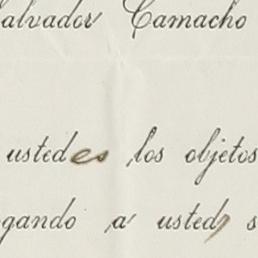 alvador Camacho
ustedes los objetos
gando a usted s